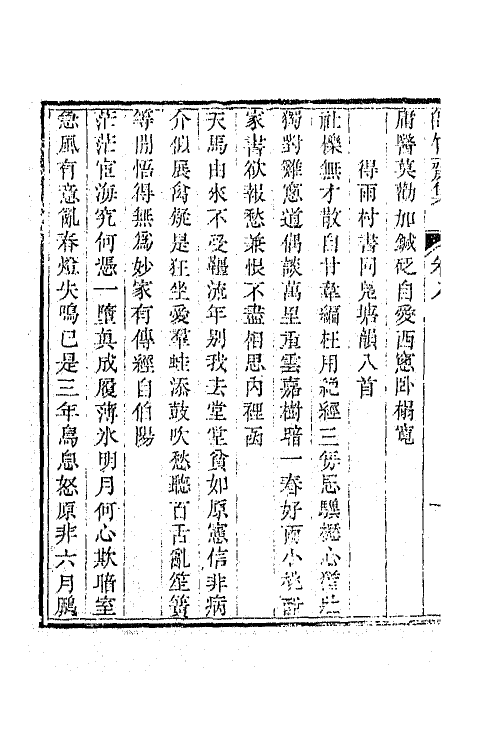 庸醫莫勸加鍼砭自愛西窻臥榻寬
得雨村書同鳧塘韻八首
社櫟無才散自甘韋編枉用絕經三勞思驥櫪心猶壯
獨對雞窻道偶談萬里重雲嘉樹暗一春好雨小桃
家書欲報愁兼恨不盡相思內裡函
天馬由來不受韁流年别我去堂堂貧如原憲信非病
介似展禽疑是狂坐愛羣蛙添鼓吹愁聽百舌亂笙簧
等閒悟得無爲妙家有傳經自伯陽
茫茫宦海究何憑一墮真成履薄冰明月何心欺暗室
急風有意亂春燈失鳴已是三年鳥息怒原非六月鵬